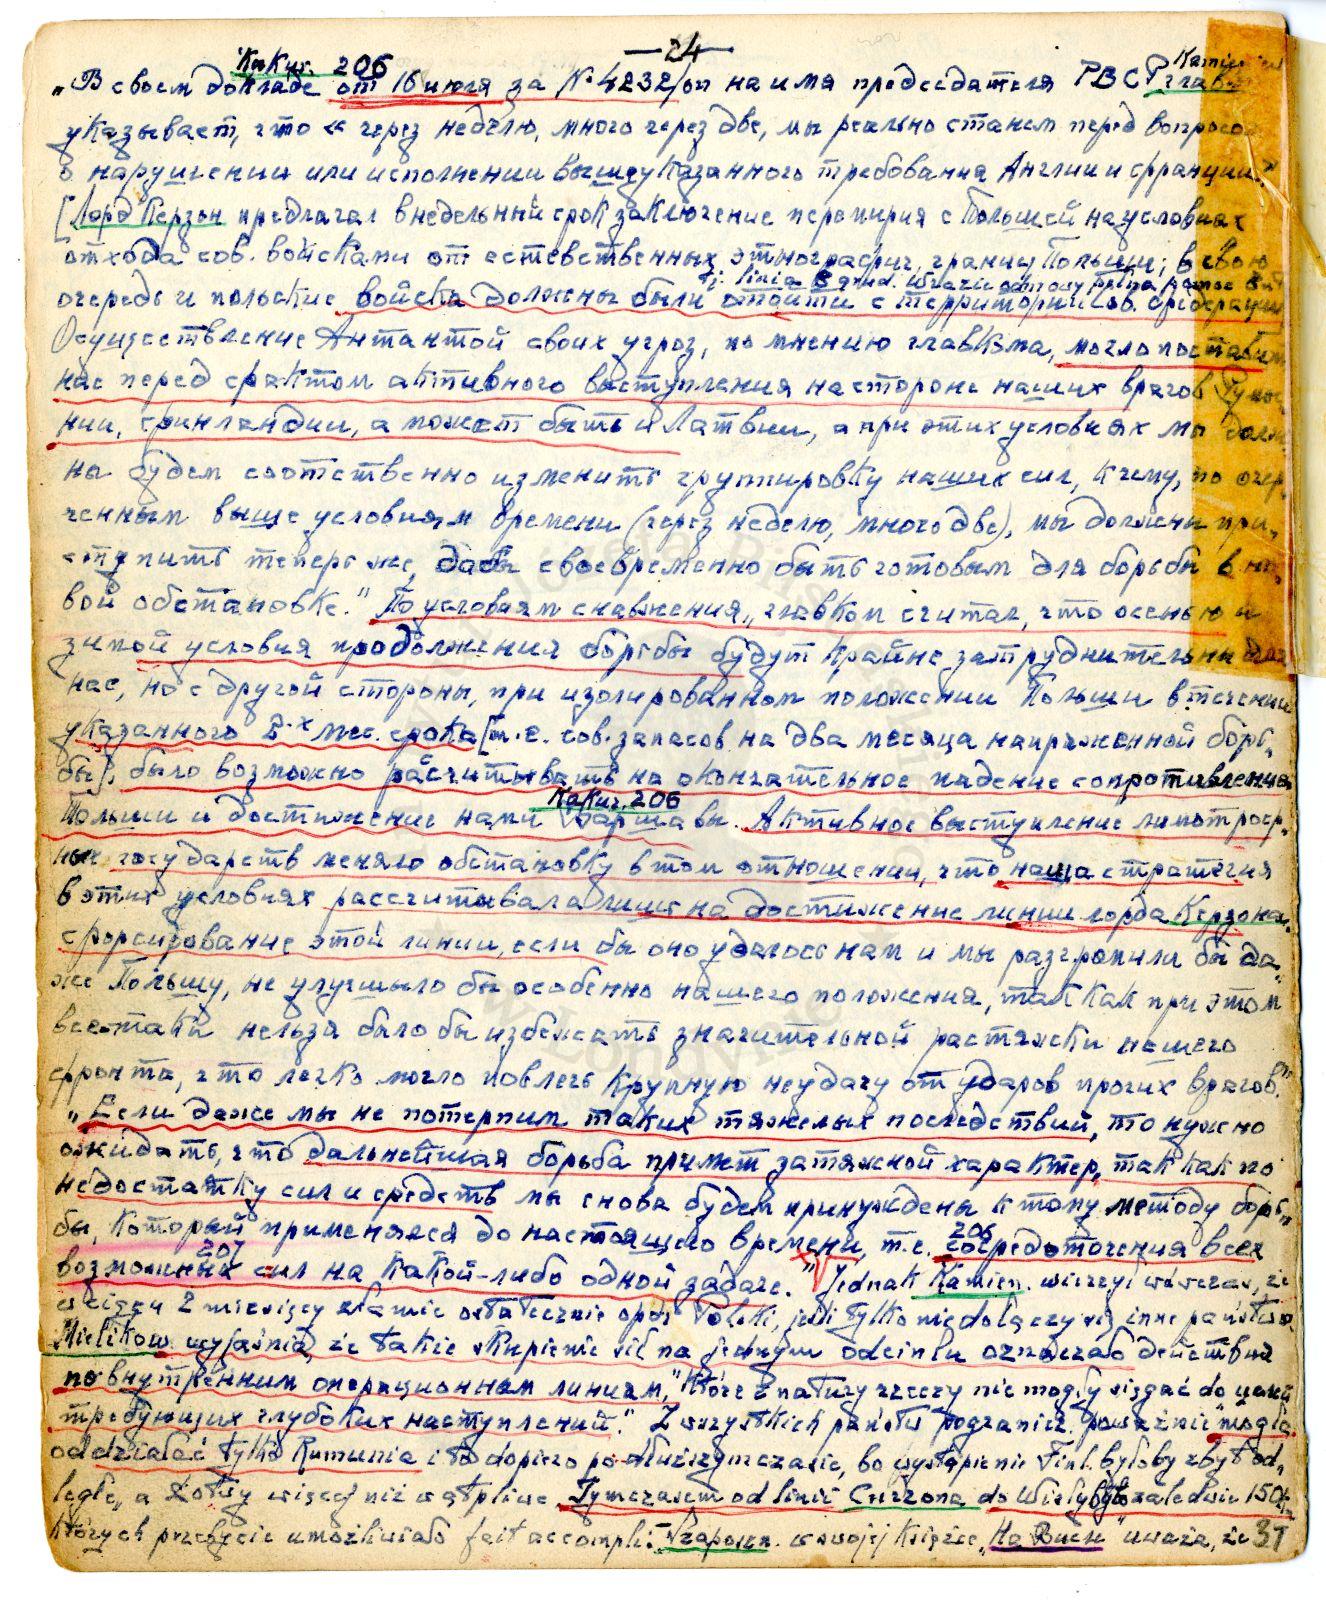 — 24 —
Какур. 206
„В своем докладе от 16 июля за № 4232/оп на имя председателя РВСР главк
указывает, что « через неделю, много через две, мы реально станем перед вопросом
о нарушении или исполнении вышеуказанного требования Англии и Франции."
[Лорд Керзон предлагал в недельный срок заключение перемирия с Польшей на условиях
отхода сов. войсками от естественных этнографич. границ Польши; в свою
tj. linia B
очередь и польские войска должны были отойти с территории сов. федерации
Осуществление Антантой своих угроз, по мнению главкома, могло поставить
нас перед фактом активного выступления на стороне наших врагов Румы-
нии, Финляндии, а может быть и Латвии, а при этих условиях мы долж
на будем соотственно изменить группировку наших сил, к чему, по очер-
ченным выше условиям времени (через неделю, много две), мы должны при-
ступить теперь же, дабы своевременно быть готовым для борьбы в но-
вой обстановке." По условиям снавжения, главком считал, что осенью и
зимой условия продолжения борьбы будут крайне затруднительны для
нас, но с другой стороны, при изолированном положении Польши в течении
указанного 2-х мес. срока [т. е. сов. запасов на два месяца напряженной борь-
бы], было возможно расчитывать на окончательное падение сопротивления
Какур. 206
Польши и достижение нами Варшавы. Активное выступление лимотроф-
ных государств меняло обстановку в том отношении, что наша стратегия
в этих условиях рассчитывала лишь на достижение линии лорда Керзона.
Форсирование этой линии, если бы оно удалось нам и мы разгромили бы да-
же Польшу, не улучшыло бы особенно нашего положения, так как при этом
всетаки нельзя было бы избежать значительной растяжки нашего
фронта, что легко могло повлечь крупную неудачу от ударов прочих врагов."
„Если даже мы не потерпим таких тяжелых последствий, то нужно
ожидать, что дальнейшая борьба примет затяжной характер, так как по
недостатку сил и средств мы снова будем принуждены к тому методу борь-
206
бы, который применялся до настоящего времени, т. е. сосредоточения всех
207
возможных сил на какой-либо одной задаче." Jednak Kamien. wierzył wówczas, że
w ciągu 2 miesięcy złamie ostatecznie opór Polski, jeśli tylko nie dołączy się inne państwo.
Mielikow wyjaśnia, że takie skupienie sił na jednym odcinku oznaczało действия
по внутренним операционным линиям," które z natury rzeczy nie mogły sięgać do целей
требующих глубоких наступлений." Z wszystkich państw pogranicz. poważnie mogła
oddziałać tylko Rumunia i to dopiero po dłuższym czasie, bo wystąpienie Finl. byłoby zbyt od-
ległe, a Łotwy więcej niż wątpliwe. Tymczasem od linii Curzona do Wisły było zaledwie 150 k.
których przebycie umożliwiało fait accompli. Szaposzn. w swojej książce „На Висле" uważa, że
37